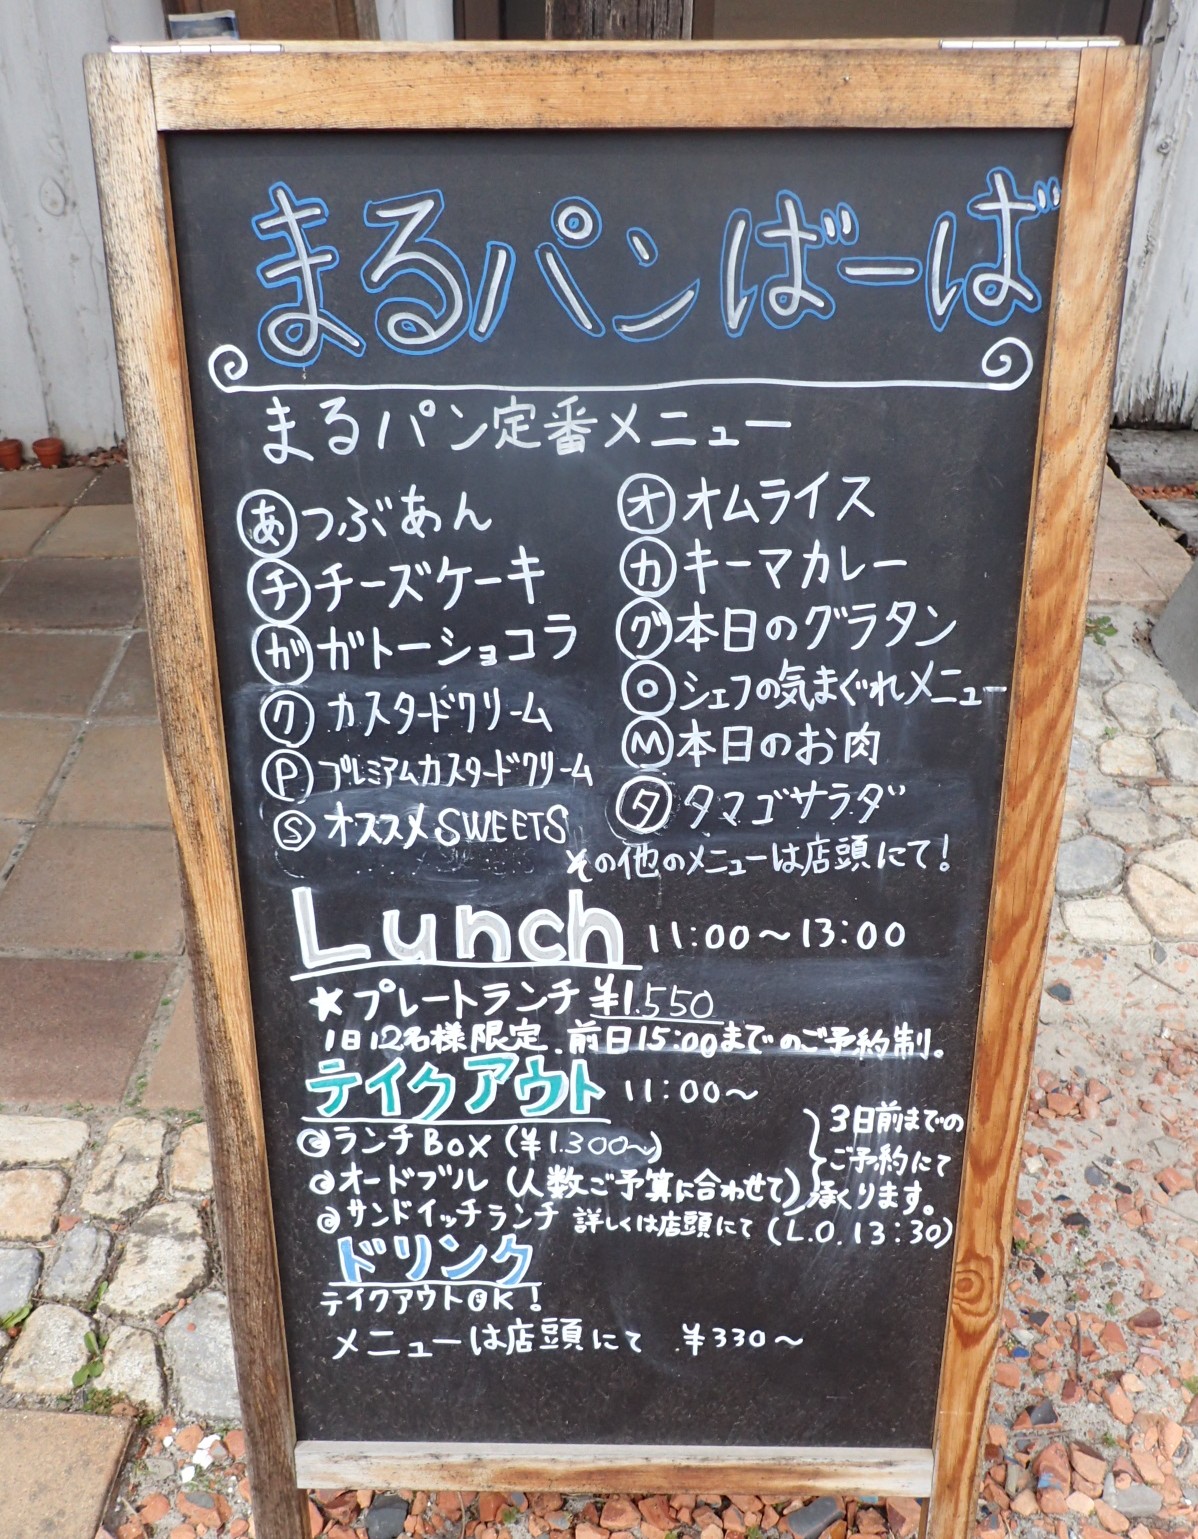 まるパンばーば
まるパン定番メニュー
あ つぶあん
チ チーズケーキ
ガ ガトーショコラ
ク カスタードクリーム
P プレミアムカスタードクリーム
S オススメSWEETS
オ オムライス
カ キーマカレー
グ 本日のグラタン
○ シェフの気まぐれメニュー
M 本日のお肉
タ タマゴサラダ
その他のメニューは店頭にて!
Lunch 11:00〜13:00
★プレートランチ ¥1.550
1日12名様限定、前日15:00までのご予約制。
テイクアウト 11:00〜
ランチBox (¥1.300〜)
オードブル (人数ご予算に合わせて)
3日前までの
ご予約にて
承くります。
サンドイッチランチ 詳しくは店頭にて (L.O.13:30)
ドリンク
テイクアウトOK!
メニューは店頭にて ¥330〜